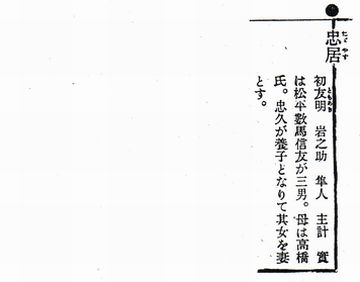 忠居
初友明 岩之助 隼人 主計 實
は松平數馬信友が三男。母は高橋
氏。忠久が養子となりて其女を妻
とす。